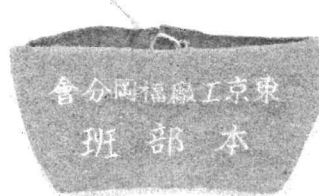 東京工廠福岡分會
本部班